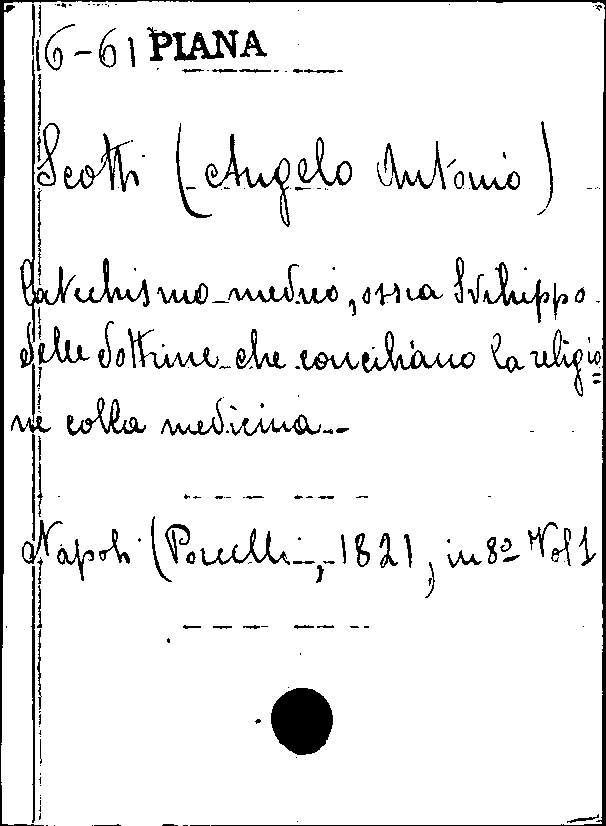 16-61 PIANA
Scotti (Angelo Antonio)
Catechismo medico, ossia Sviluppo
delle dottrine che conciliano la religio
ne colla medicina
Napoli (Porcelli, 1821, in 8º Vol 1